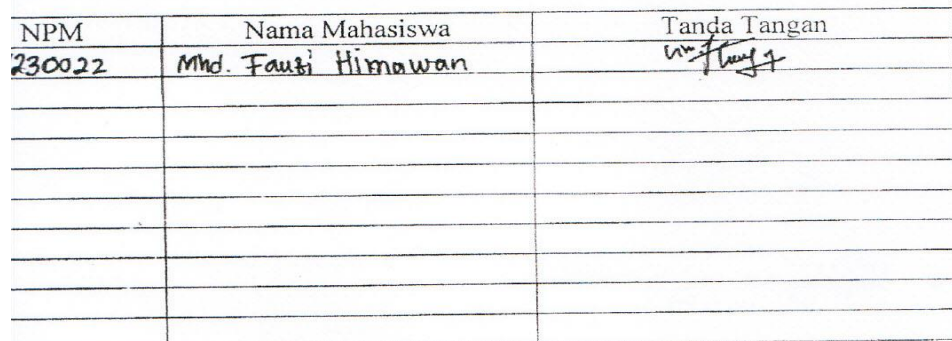 NPM Nama Mahasiswa Tanda Tangan
230022 Mhd. Fauzi Himawan